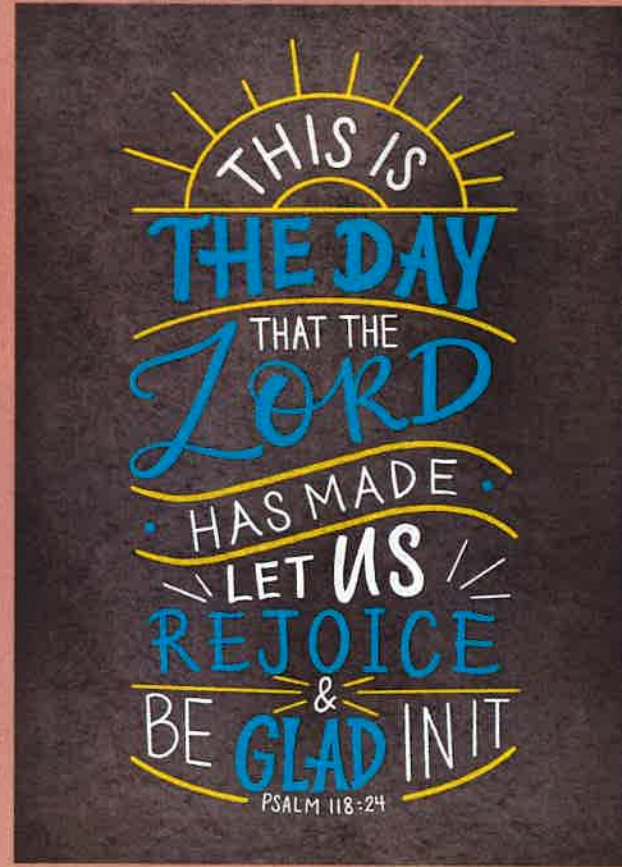 THIS IS
THE DAY
THAT THE
LORD
HAS MADE
LET US
REJOICE
&
BE GLAD IN IT
PSALM 118:24